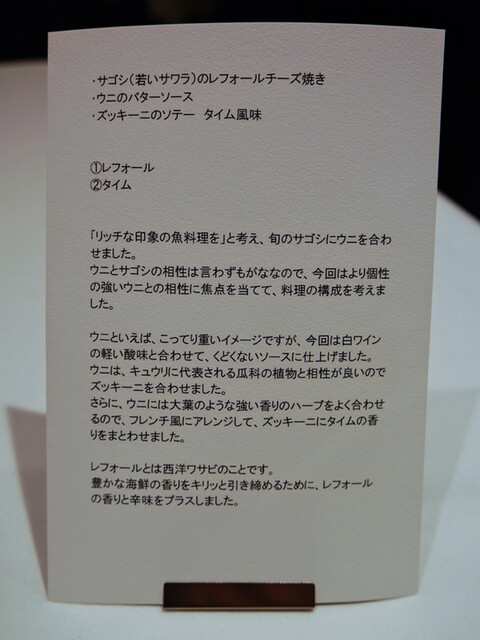 ・サゴシ（若いサワラ）のレフォールチーズ焼き
・ウニのバターソース
・ズッキーニのソテー　タイム風味
①レフォール
②タイム
「リッチな印象の魚料理を」と考え、旬のサゴシにウニを合わ
せました。
ウニとサゴシの相性は言わずもがななので、今回はより個性
の強いウニとの相性に焦点を当てて、料理の構成を考えま
した。
ウニといえば、こってり重いイメージですが、今回は白ワイン
の軽い酸味と合わせて、くどくないソースに仕上げました。
ウニは、キュウリに代表される瓜科の植物と相性が良いので
ズッキーニを合わせました。
さらに、ウニには大葉のような強い香りのハーブをよく合わせ
るので、フレンチ風にアレンジして、ズッキーニにタイムの香
りをまとわせました。
レフォールとは西洋ワサビのことです。
豊かな海鮮の香りをキリッと引き締めるために、レフォール
の香りと辛味をプラスしました。